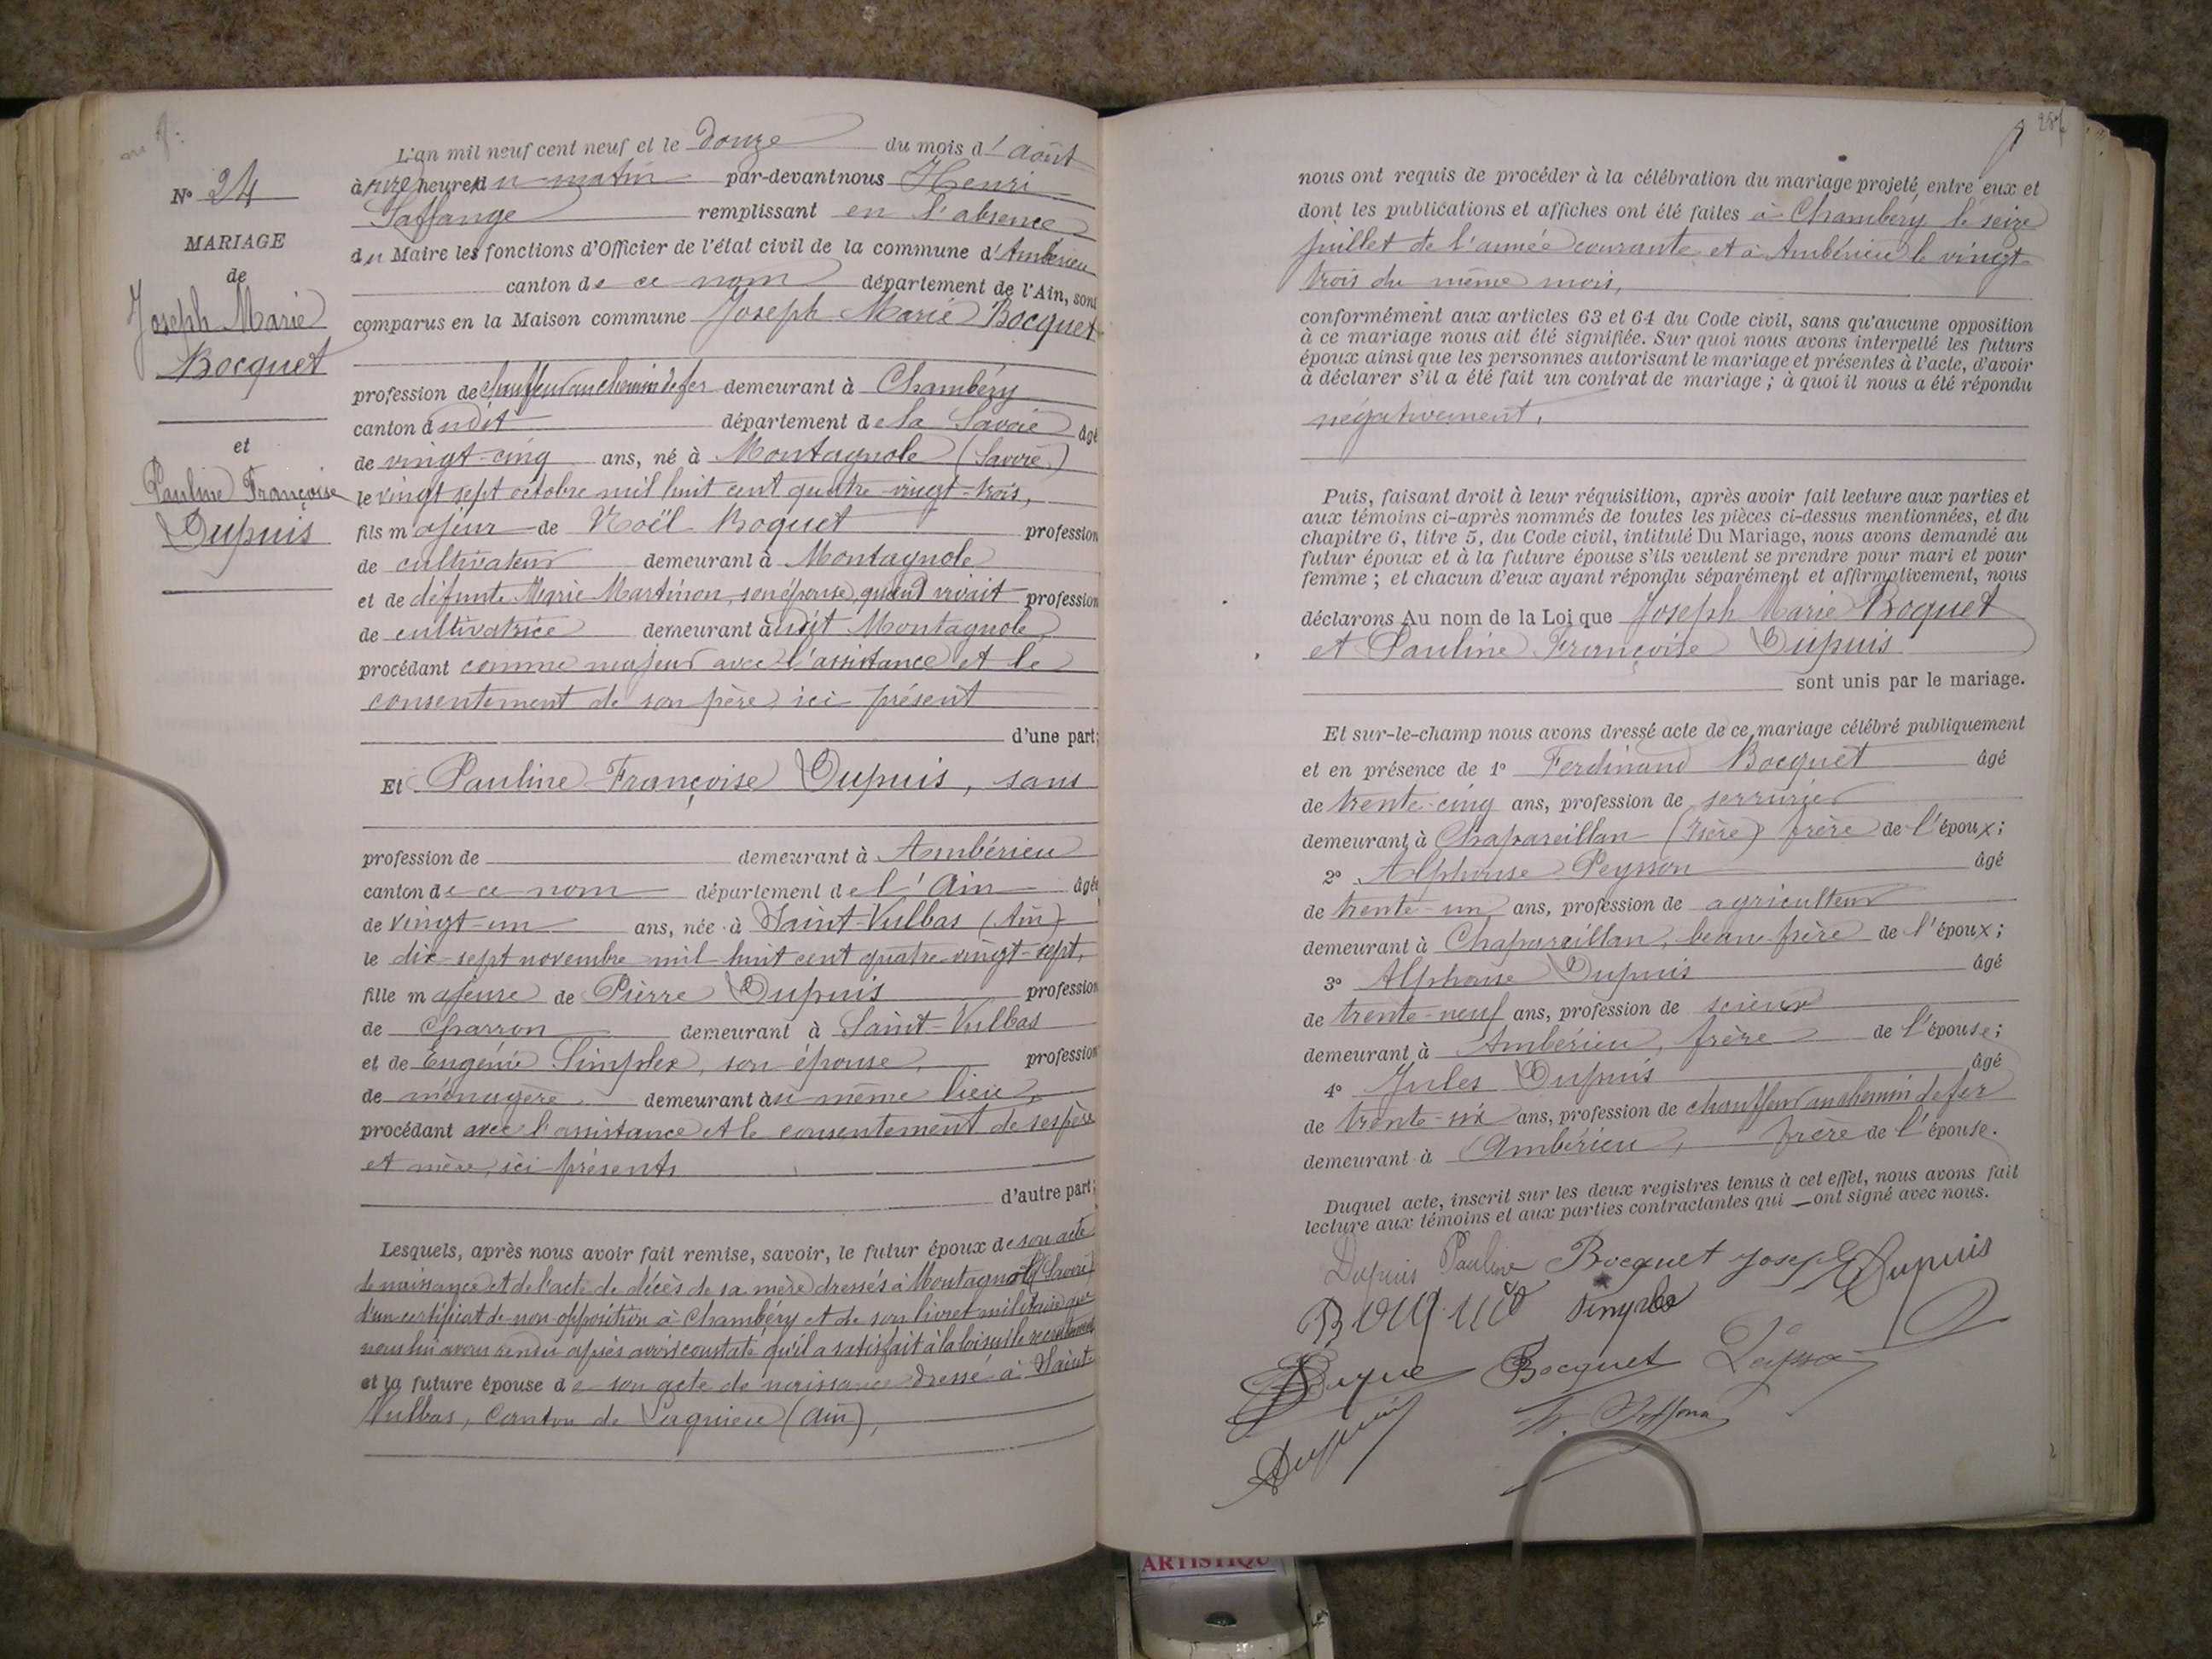 N° 24
MARIAGE
de
Joseph Marie
Bocquet
et
Pauline Françoise
Dupuis
L'an mil neuf cent neuf et le douze du mois d'août
à onze heures du matin par-devant nous Henri
remplissant en l'absence
du Maire les fonctions d'Officier de l'état civil de la commune d'Ambérieu
canton de ce nom département de l'Ain, sont
comparus en la Maison commune Joseph Marie Bocquet
profession de chauffeur au chemin de fer demeurant à Chambéry
canton dudit département de la Savoie âgé
de vingt-cinq ans, né à Montagnole (Savoie)
le vingt sept octobre mil huit cent quatre-vingt-trois,
fils majeur de Noël Boquet profession
de cultivateur demeurant à Montagnole
et de défunte Marie Martinon, son épouse, quand vivait profession
de cultivatrice demeurant audit Montagnole,
procédant comme majeur avec l'assistance et le
consentement de son père ici présent
d'une part;
Et Pauline Françoise Dupuis, sans
profession de demeurant à Ambérieu
canton de ce nom département de l'Ain âgée
de vingt-un ans, née à Saint-Vulbas (Ain)
le dix-sept novembre mil huit cent quatre-vingt-sept,
fille majeure de Pierre Dupuis profession
de charron demeurant à Saint-Vulbas
et de Eugénie Simplex, son épouse, profession
de ménagère demeurant au même lieu,
procédant avec l'assistance et le consentement de ses père
et mère, ici présents
d'autre part;
Lesquels, après nous avoir fait remise, savoir, le futur époux de son acte
de naissance et de l'acte de décès de sa mère dressés à Montagnole (Savoie)
d'un certificat de non opposition à Chambéry et de son livret militaire que
nous lui avons rendu après avoir constaté qu'il a satisfait à la loi sur le recrutement
et la future épouse de son acte de naissance dressé à Saint-
Vulbas, canton de Lagnieu (Ain),
nous ont requis de procéder à la célébration du mariage projeté entre eux et
dont les publications et affiches ont été faites à Chambéry le seize
juillet de l'année courante et à Ambérieu le vingt-
trois du même mois,
conformément aux articles 63 et 64 du Code civil, sans qu'aucune opposition
à ce mariage nous ait été signifiée. Sur quoi nous avons interpellé les futurs
époux ainsi que les personnes autorisant le mariage et présentes à l'acte, d'avoir
à déclarer s'il a été fait un contrat de mariage; à quoi il nous a été répondu
négativement.
Puis, faisant droit à leur réquisition, après avoir fait lecture aux parties et
aux témoins ci-après nommés de toutes les pièces ci-dessus mentionnées, et du
chapitre 6, titre 5, du Code civil, intitulé Du Mariage, nous avons demandé au
futur époux et à la future épouse s'ils veulent se prendre pour mari et pour
femme; et chacun d'eux ayant répondu séparément et affirmativement, nous
déclarons Au nom de la Loi que Joseph Marie Bocquet
et Pauline Françoise Dupuis
sont unis par le mariage.
Et sur-le-champ nous avons dressé acte de ce mariage célébré publiquement
et en présence de 1° Ferdinand Bocquet âgé
de trente-cinq ans, profession de serrurier
demeurant à Chapareillan (Isère) frère de l'époux;
2° Alphonse Peysson âgé
de trente-un ans, profession de agriculteur
demeurant à Chapareillan, beau-frère de l'époux;
3° Alphonse Dupuis âgé
de trente-neuf ans, profession de scieur
demeurant à Ambérieu, frère de l'épouse;
4° Jules Dupuis âgé
de trente-six ans, profession de chauffeur au chemin de fer
demeurant à Ambérieu, frère de l'épouse.
Duquel acte, inscrit sur les deux registres tenus à cet effet, nous avons fait
lecture aux témoins et aux parties contractantes qui ont signé avec nous.
Dupuis Pauline Bocquet Joseph Dupuis
Bocquet
Dupuis
ARTISTIQU